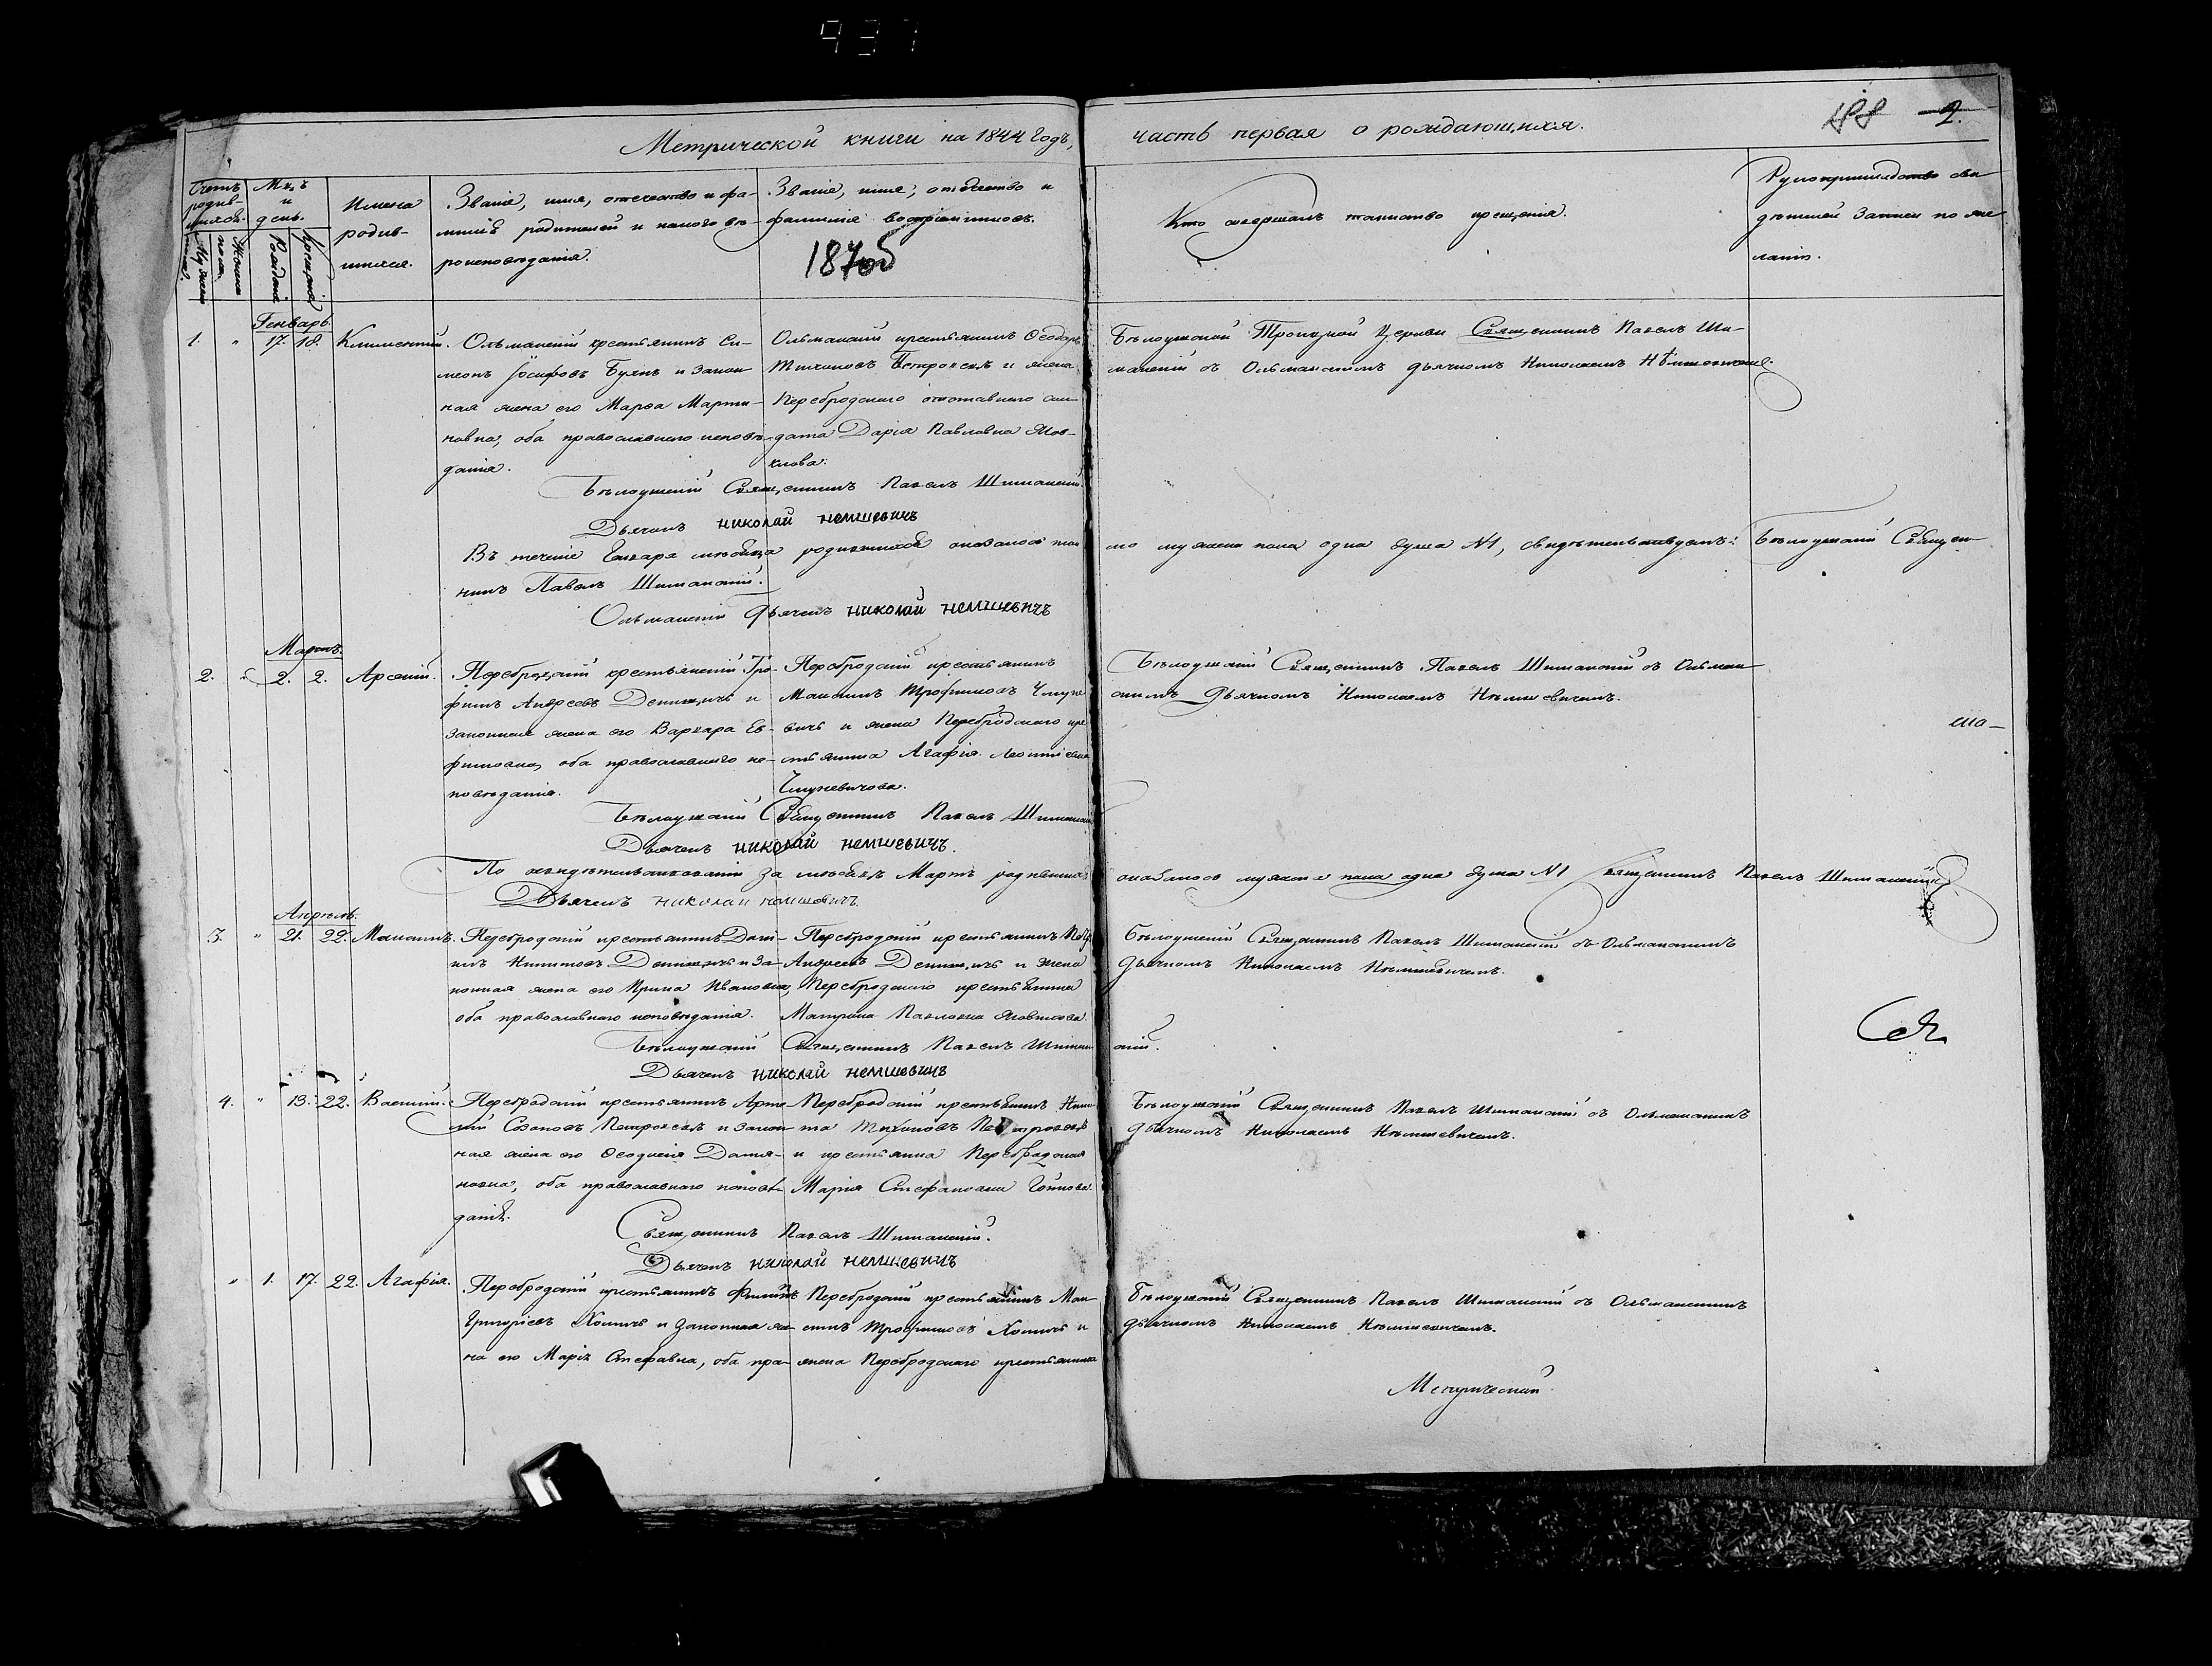 937
Метрической книги на 1844 Годъ, часть первая о рождающихся.
188 2.
Счетъ родив-шихся.
Мужеска пола.
Женска
Мц.ъ и день.
Рожденія
Крещенія
Имена родив-шихся.
Званіе, имя, отечество и фа-
милія родителей и какого вѣ-
роисповѣданія.
Званіе, имя, отечество и
фамилія воспріемниковъ.
187об
Кто совершалъ таинство крещенія.
Рукоприкладство сви
дѣтелей записи по же
ланію.
Генварь.
1. " 17. 18. Климентій.
Ольманскій крестьянинъ Си-
меонъ Іосифовъ Буякъ и закон
ная жена его Марѳа Марти-
новна, оба православнаго исповѣ-
данія.
Ольманскій крестьянинъ Ѳеодоръ
Тихоновъ Петровскъ и жена
Перебродскаго отставнаго сол
дата Дарія Павловна Яов-
клова.
Бѣлоушской Троицкой Церкви Священникъ Павелъ Ши-
манскій съ Ольманскимъ дьячкомъ Николаемъ Нѣмшевичемъ.
Бѣлоушскій Священникъ Павелъ Шиманскій.
Дьячекъ николай немшевичъ
Въ теченіе Генваря мѣсяца родившихся оказалось толь
ко мужеска пола одна душа №1, свидѣтельствуемъ: Бѣлоушскій Священ-
никъ Павелъ Шиманскій.
Ольманскій Дьячекъ николай немшевичъ
Мартъ.
2. " 2. 2. Арсеній.
Перебродскій крестьянинъ Тро-
фимъ Андреевъ Денищичъ и
законная жена его Варвара Ев-
фимовна, оба православнаго ис-
повѣданія.
Перебродскій крестьянинъ
Максимъ Трофимовъ Чмуне
вичъ и жена Перебродскаго кре
стьянина Агафія Леонтіевна
Чмуневичова.
Бѣлоушскій Священникъ Павелъ Шиманскій съ Ольман
скимъ Дьячкомъ Николаемъ Нѣмшевичемъ.
сла-
Бѣлоушскій Священникъ Павелъ Шиманскій
Дьячекъ николай немшевичъ.
По освидѣтельствованіи за мѣсяцъ Мартъ родившихся
оказалось мужеска пола одна душа №1 Священникъ Павелъ Шиманскій
Дьячекъ николай немшевичъ.
Апрѣль.
3. " 21. 22. Максимъ.
Перебродскій крестьянинъ Дані-
илъ Никитовъ Денищичъ и за-
конная жена его Ирина Ивановна,
оба православнаго исповѣданія.
Перебродскій крестьянинъ
Андреевъ Денищичъ и жена
Перебродскаго крестьянина
Матрона Павловна Яовклова.
Бѣлоушскій Священникъ Павелъ Шиманскій съ Ольманскимъ
Дьячкомъ Николаемъ Нѣмшевичемъ.
Бѣлоушскій Священникъ Павелъ Шиман
скій.
Дьячекъ николай немшевичъ
4. " 13. 22. Василій.
Перебродскій крестьянинъ Арте
мій Созоновъ Петровскъ и закон
ная жена его Ѳеодосія Дамя-
новна, оба православнаго исповѣ-
данія.
Перебродскій крестьянинъ Ники
та Тихоновъ Петровскъ
и крестьянка Перебродская
Марія Стефановна
Бѣлоушскій Священникъ Павелъ Шиманскій съ Ольманскимъ
Дьячкомъ Николаемъ Нѣмшевичемъ.
Священникъ Павелъ Шиманскій.
Дьячекъ николай немшевичъ
" 1. 17. 22. Агафія.
Перебродскій крестьянинъ Филипъ
Григоріевъ Хомичъ и законная же
на его Марія Стефавна, оба пра-
Перебродскій крестьянинъ Мак
симъ Трофимовъ Хомичъ и
жена Перебродскаго крестьянина
Бѣлоушскій Священникъ Павелъ Шиманскій съ Ольманскимъ
дьячкомъ Николаемъ Нѣмшевичемъ.
Метрической